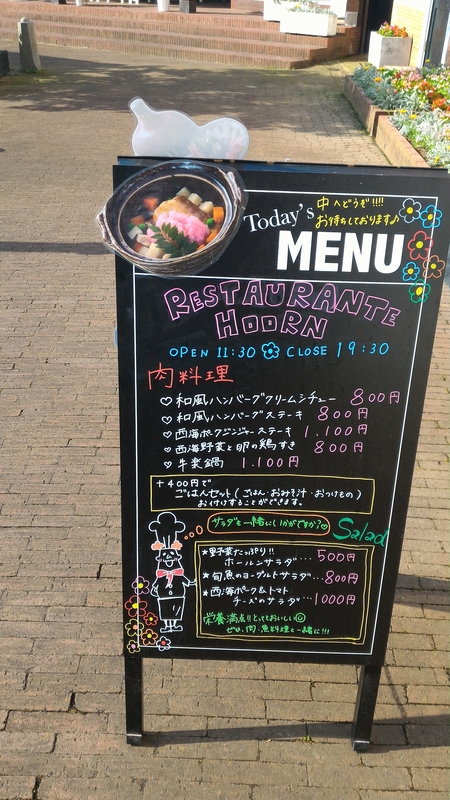 Today's
中へどうぞ!!!!
お待ちしております♪
MENU
RESTAURANTE
HOORN
OPEN 11:30 CLOSE 19:30
肉料理
♡和風ハンバーグクリームシチュー 800円
♡和風ハンバーグステーキ 800円
♡西海ポークジンジャーステーキ 1.100円
♡西海野菜と卵の鶏すき 800円
♡牛楽鍋 1.100円
+400円で
ごはんセット(ごはん・おみそ汁・おつけもの)
お付けすることができます。
サラダも一緒にいかがですか?♡
Salad
★野菜たっぷり!!
ホールンサラダ… 500円
★旬魚のヨーグルトサラダ… 800円
★西海ポーク&トマト
チーズのサラダ… 1000円
栄養満点!!とってもおいしい
ぜひ、肉・魚料理と一緒に!!!